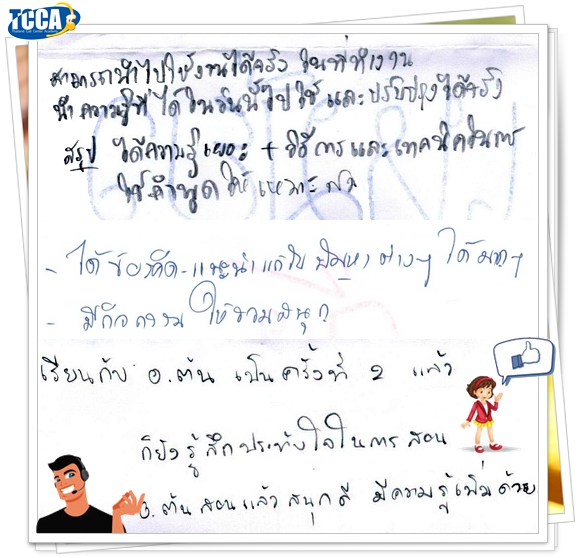 TCCA
Thailand Call Center Academy
สามารถนำไปใช้งานได้จริง ในที่ทำงาน
นำความรู้ที่ได้ในวันนี้ไปใช้และปรับปรุงได้จริง
สรุป ได้ความรู้เยอะ + วิธีการและเทคนิคในการ
ใช้คำพูดให้เหมาะสม
- ได้ข้อคิด-แนะนำแก้ไขปัญหาต่างๆ ได้มากๆ
- มีกิจกรรมให้ร่วมสนุก
เรียนกับ อ.ต้น เป็นครั้งที่ 2 แล้ว
ก็ยังรู้สึกประทับใจในการสอน
อ.ต้น สอนแล้วสนุกดี มีความรู้เพิ่มด้วย